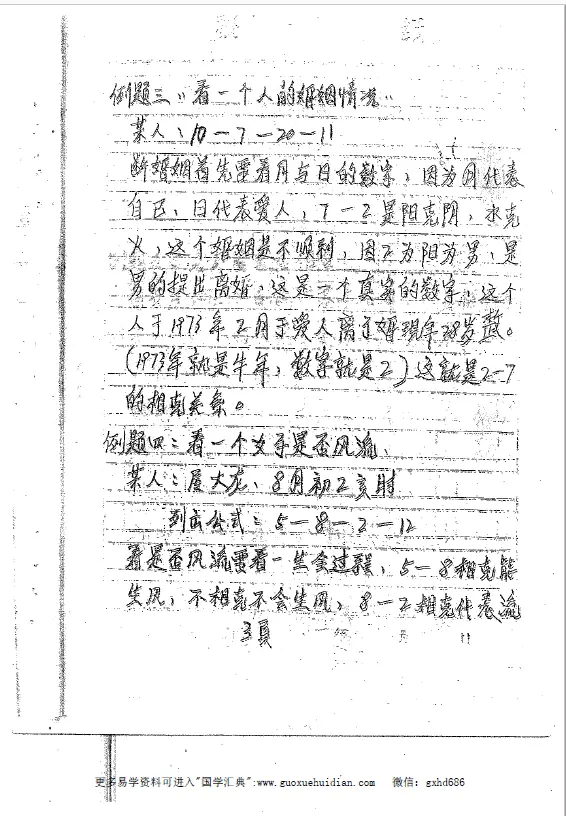 例题三：看一个人的婚姻情况
某人：10－7－20－11
断婚姻首先要看月与日的数字，因为月代表
自己，日代表爱人，7－2是阳克阴，水克
火，这个婚姻是不顺利，因2为阳为男，是
男的提出离婚，这是一个真实的数字，这个
人于1973年2月于爱人离了婚现年38岁整。
(1973年就是牛年，数字就是2)这就是2－7
的相克关系。
例题四：看一个女子是否风流
某人：属大龙、8月初2亥时
列出公式：5－8－2－12
看是否风流要看一生食过程，5－8相克能
生风，不相克不会生风，8－2相克代表流
3页
更多易学资料可进入"国学汇典":www.guoxuehuidian.com 微信: gxhd686